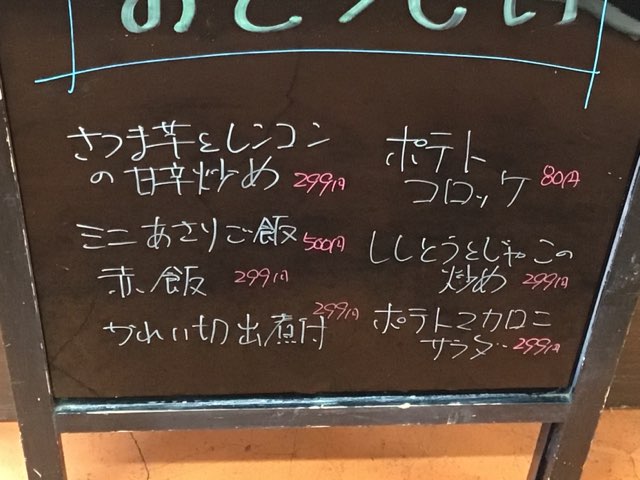 さつま芋とレンコン
の甘辛炒め 299円
ミニあさりご飯 500円
赤飯 299円
かれい切出煮付 299円
ポテト
コロッケ 80円
ししとうとじゃこの
炒め 299円
ポテトマカロニ
サラダ 299円